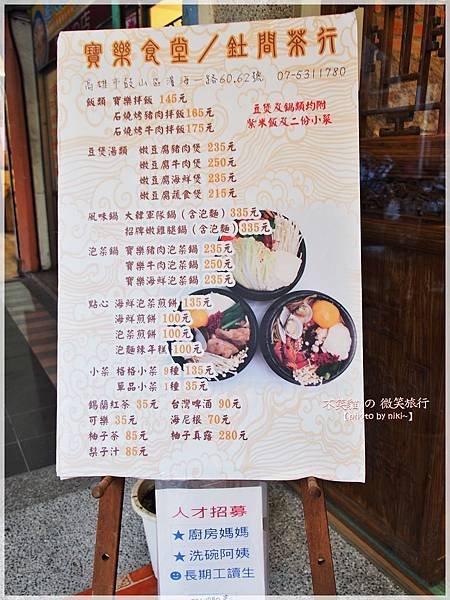 寶樂食堂／釷間茶行
高雄市鼓山區濱海一路60.62號 07-5311780
飯類 寶樂拌飯 145元
石燒烤豬肉拌飯165元
石燒烤牛肉拌飯175元
豆煲及鍋類均附
紫米飯及二份小菜
豆煲湯類 嫩豆腐豬肉煲 235元
嫩豆腐牛肉煲 250元
嫩豆腐海鮮煲 235元
嫩豆腐蔬食煲 215元
風味鍋 大韓軍隊鍋(含泡麵)335元
招牌嫩雞腿鍋(含泡麵)335元
泡菜鍋 寶樂豬肉泡菜鍋 235元
寶樂牛肉泡菜鍋 250元
寶樂海鮮泡菜鍋 235元
點心 海鮮泡菜煎餅 135元
海鮮煎餅 100元
泡菜煎餅 100元
泡麵辣年糕 100元
小菜 格格小菜 9種 135元
單品小菜 1種 35元
錫蘭紅茶 35元 台灣啤酒 90元
可樂 35元 海尼根 70元
柚子茶 85元 柚子真露 280元
梨子汁 85元
の 微笑旅行
【photo by niki~】
人才招募
★ 廚房媽媽
★ 洗碗阿姨
長期工讀生